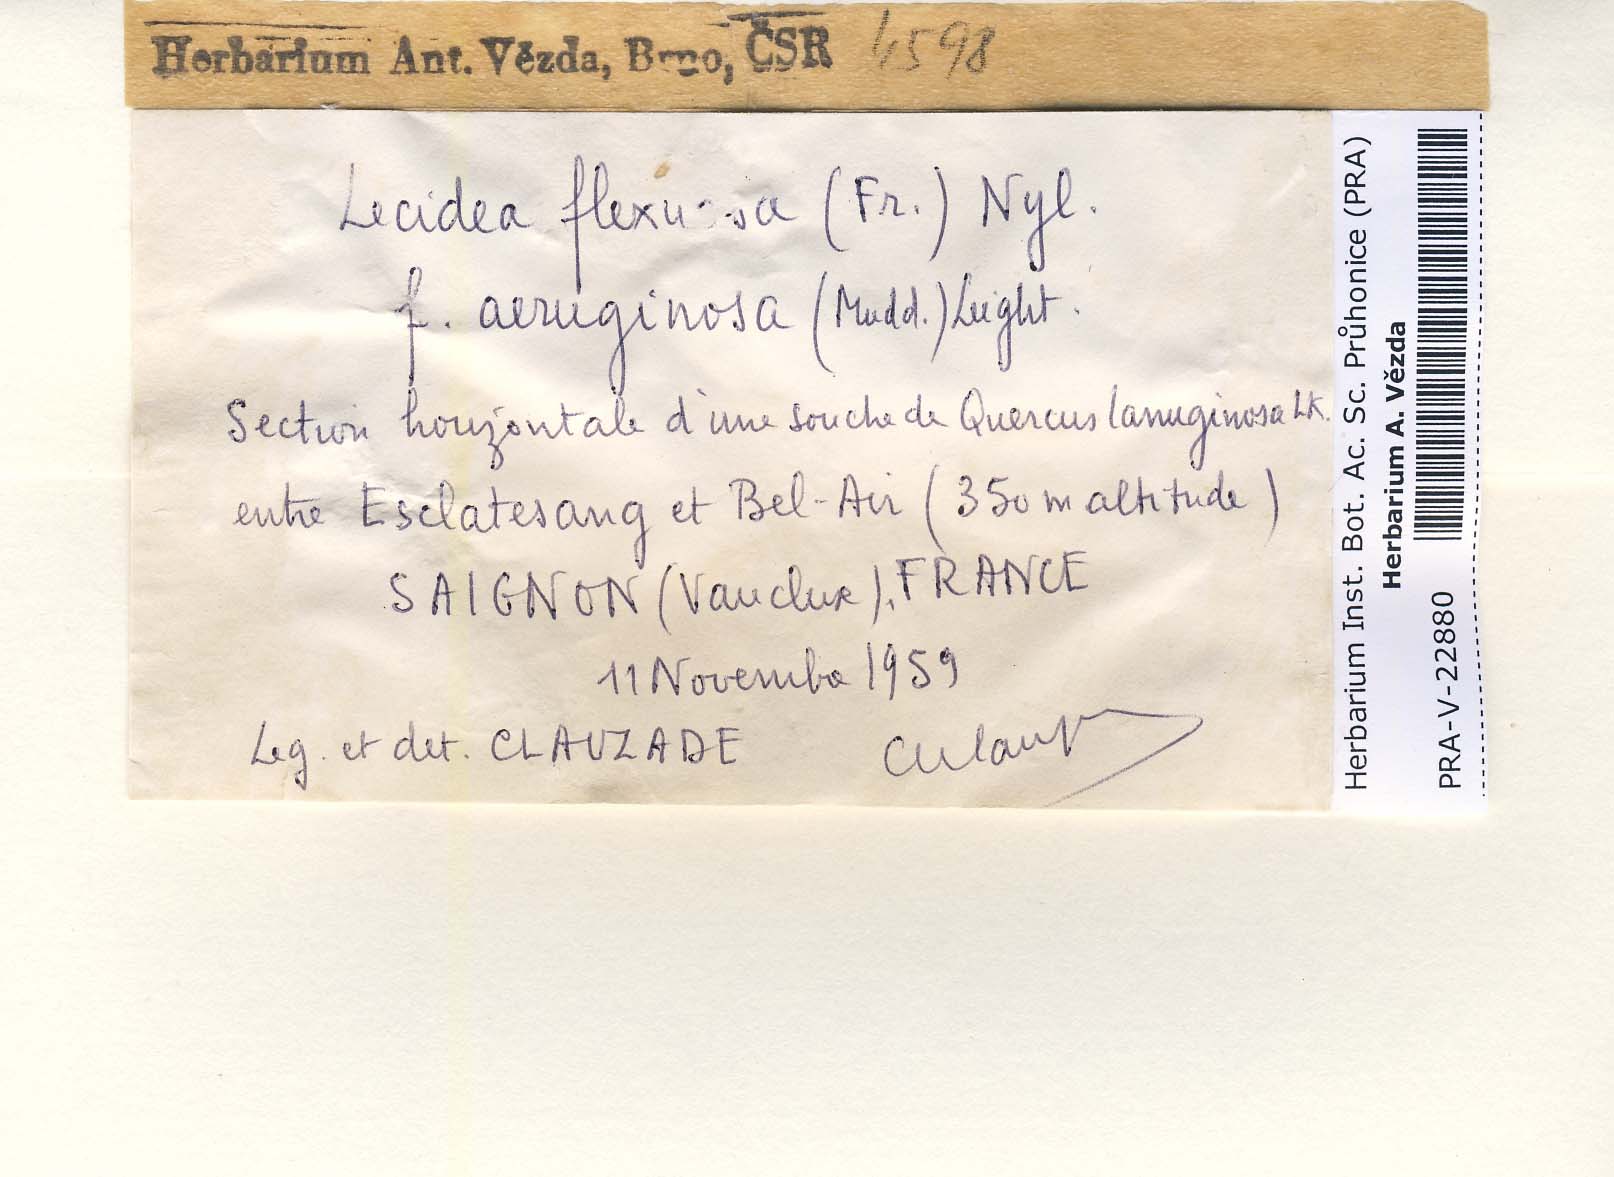 Herbarium Ant. Vězda, Brno, ČSR 4598
Lecidea flexuosa (Fr.) Nyl.
f. aeruginosa (Mudd.) Leight.
Section horizontale d'une souche de Quercus lanuginosa Lk.
entre Esclatesang et Bel-Air (350 m altitude)
SAIGNON (Vaucluse), FRANCE
11 Novembre 1959
Leg. et det. CLAUZADE
Herbarium Inst. Bot. Ac. Sc. Průhonice (PRA)
Herbarium A. Vězda
PRA-V-22880